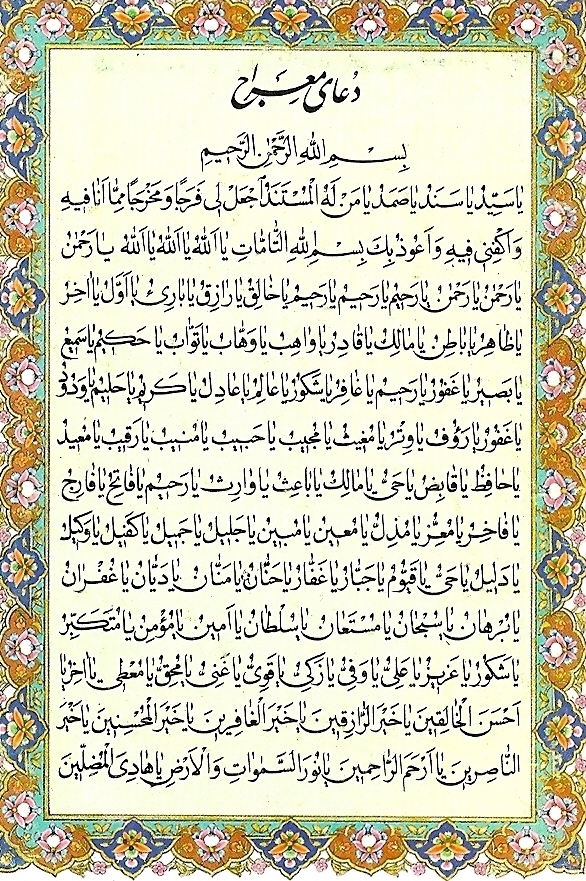 دُعای مِعراج
بِسْمِ اللهِ الرَّحْمٰنِ الرَّحيمِ
يا سَيِّدُ يا سَنَدُ يا صَمَدُ يا مَنْ لَهُ الْمُسْتَنَدُ اجْعَلْ لى فَرَجًا وَ مَخْرَجًا مِمّا اَنَا فيهِ
وَ اكْفِنى فيهِ وَ اَعُوذُ بِكَ بِسْمِ للهِ التّامّاتِ يا اَللهُ يا اَللهُ يا اَللهُ يا رَحْمٰنُ
يا رَحْمٰنُ يا رَحْمٰنُ يا رَحيمُ يا رَحيمُ يا رَحيمُ يا خالِقُ يا رازِقُ يا بارِئُ يا اَوَّلُ يا اٰخِرُ
يا ظاهِرُ يا باطِنُ يا مالِكُ يا قادِرُ يا واهِبُ يا وَهّابُ يا تَوّابُ يا حَكيمُ يا سَميعُ
يا بَصيرُ يا غَفُورُ يا رَحيمُ يا غافِرُ يا شَكُورُ يا عالِمُ يا عادِلُ يا كَريمُ يا حَليمُ يا وَدُودُ
يا غَفُورُ يا رَؤُفُ يا وِتْرُ يا مُغيثُ يا مُجيبُ يا حَبيبُ يا مُنيبُ يا رَقيبُ يا مُعيدُ
يا حافِظُ يا قابِضُ يا حَىُّ يا مالِكُ يا باعِثُ يا وارِثُ يا رَحيمُ يا فاتِحُ يا فارِجُ
يا فاخِرُ يا مُعِزُّ يا مُذِلُّ يا مُعينُ يا مُبينُ يا جَليلُ يا جَميلُ يا كَفيلُ يا وَكيلُ
يا دَليلُ يا حَىُّ يا قَيُّومُ يا جَبّارُ يا غَفّارُ يا حَنّانُ يا مَنّانُ يا دَيّانُ يا غُفْرانُ
يا بُرْهانُ يا سُبْحانُ يا مُسْتَعانُ يا سُلْطانُ يا اَمينُ يا مُؤْمِنُ يا مُتَكَبِّرُ
يا شَكُورُ يا عَزيزُ يا عَلِىُّ يا وَفِىُّ يا زَكِىُّ يا قَوِىُّ يا غَنِىُّ يا مُحِقُّ يا مُعْطى يا اٰخِرُ يا
اَحْسَنَ الْخالِقينَ يا خَيْرَ الرّازِقينَ يا خَيْرَ الْغافِرينَ يا خَيْرَ الْمُحْسِنينَ يا خَيْرَ
النّاصِرينَ يا اَرْحَمَ الرّاحِمينَ يا نُورَ السَّمٰواتِ وَ الْاَرْضِ يا هادِىَ الْمُضِلّينَ